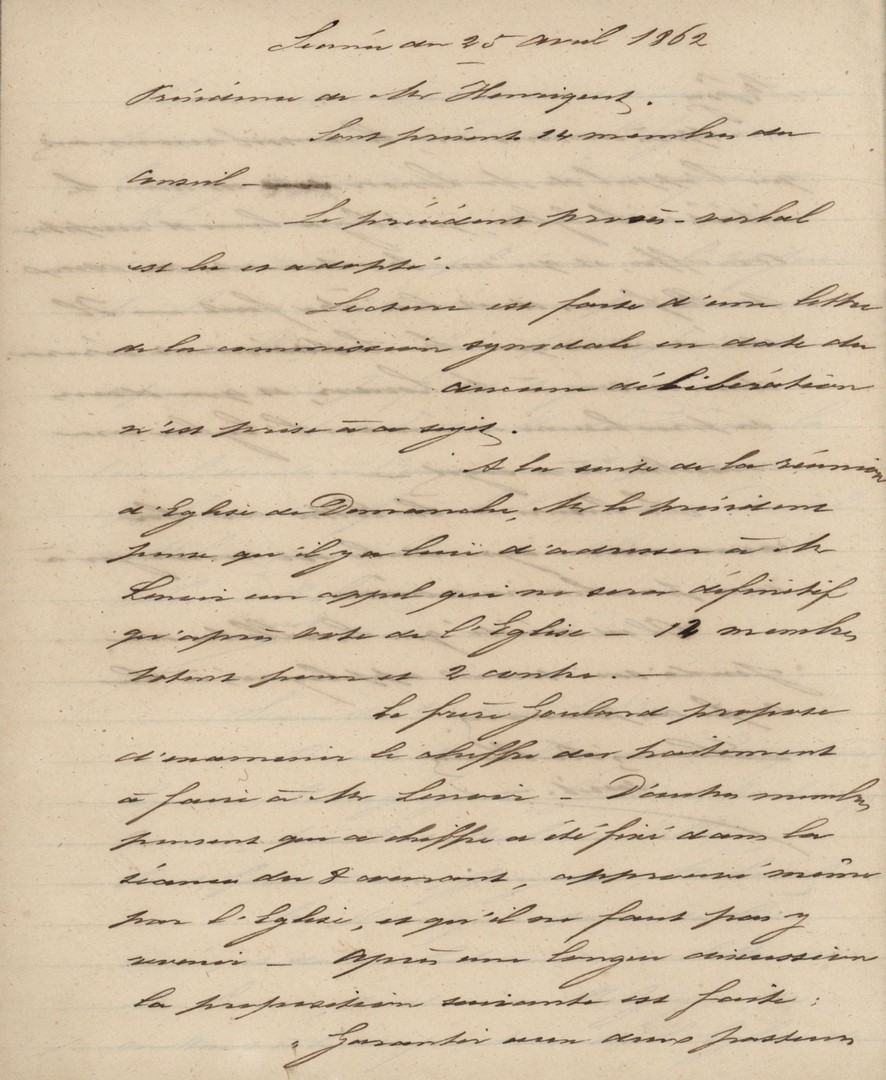 Séance du 25 avril 1862
Présidence de Mr Hennigent.
Sont présents 14 membres du
conseil —
Le président procès-verbal
est lu et adopté.
Lecture est faite d'une lettre
de la commission synodale en date du
aucune délibération
n'est prise à ce sujet.
A la suite de la réunion
d'Eglise de Dimanche, Mr le président
pense qu'il y a lieu d'adresser à Mr
Lenoir un appel qui ne sera définitif
qu'après vote de l'Eglise — 12 membres
votent pour et 2 contre. —
Le frère Goulard propose
d'examiner le chiffre du traitement
à faire à Mr Lenoir — D'autres membres
pensent que ce chiffre a été fixé dans la
séance du 8 courant, approuvé même
par l'Eglise, et qu'il ne faut pas y
revenir — Après une longue discussion
la proposition suivante est faite :
" Garantir aux deux pasteurs